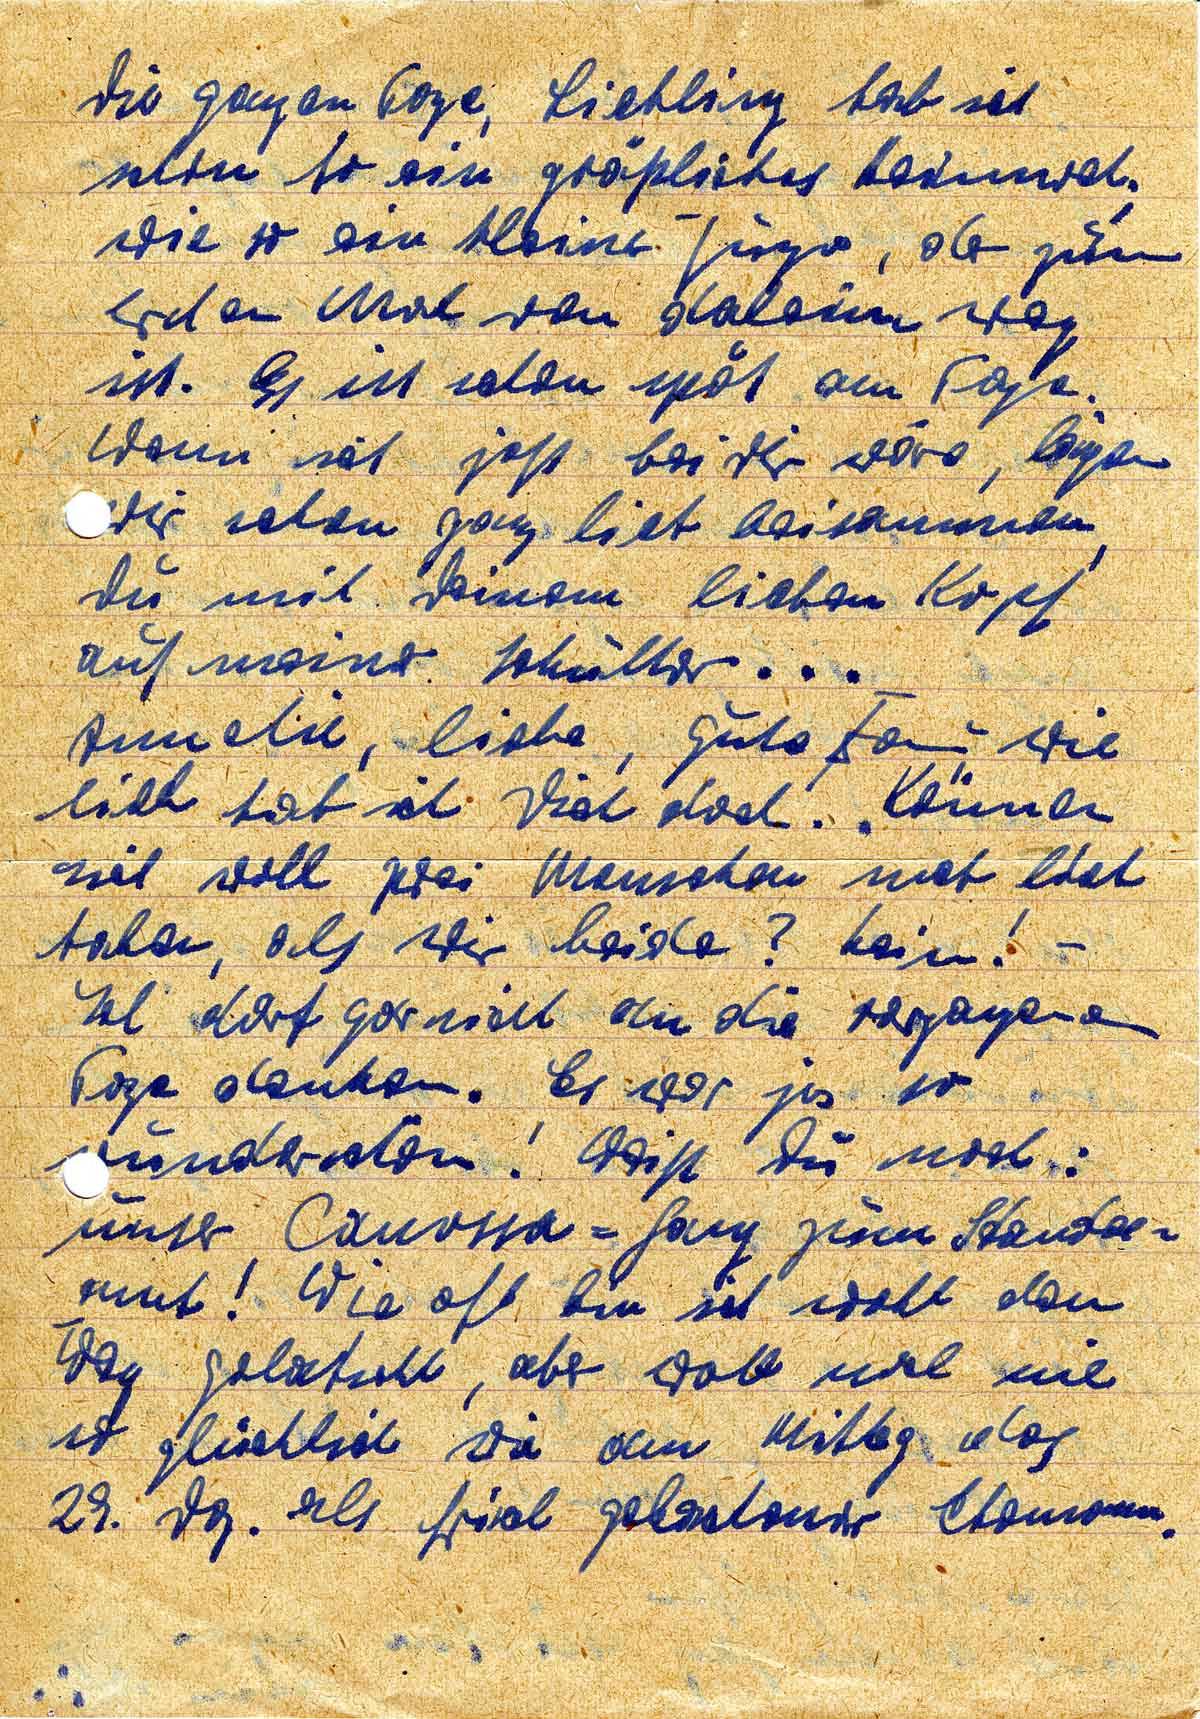 die ganzen Tage, Liebling hab ich
schon so ein gräßliches Heimweh,
wie so ein kleiner Junge, der zum
ersten Mal von daheim weg
ist. Es ist schon spät am Tage.
Wenn ich jetzt bei Dir wäre, lägen
wir schon ganz lieb beisammen,
Du mit Deinem lieben Kopf
auf meiner Schulter....
Annelie, liebe, gute Frau, wie
lieb hab ich Dich doch. Können
sich wohl zwei Menschen mehr lieb
haben, als wir beide? Nein! –
Ich darf gar nicht an die vergangenen
Tage denken. Es war ja so
wunderschön! Weißt Du noch:
unser Canossa=Gang zum Standes=
amt! Wie oft bin ich wohl den
Weg gelatscht, aber wohl noch nie
so glücklich wie am Mittag des
29. Dez. als frisch gebackener Ehemann.